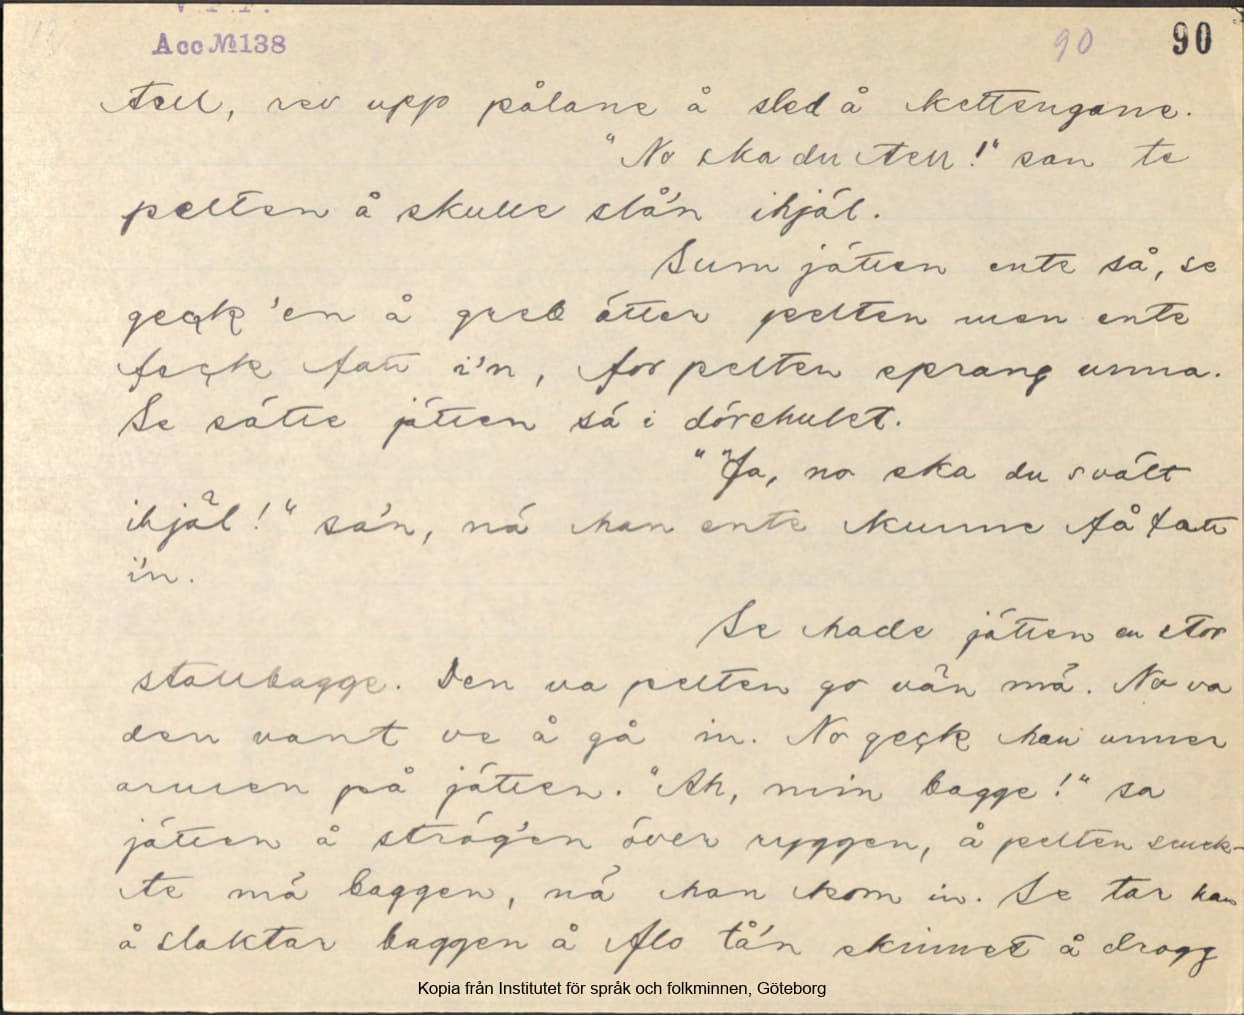 V. F. F.
Acc № 138
90 90
tell, rev upp pålane å sled å kettengane.
"No ska du tell!" san te
pelten å skulle slå'n ihjäl.
Sum jätten ente så, se
geçk 'en å greb ätter pelten men ente
feçk fatt i'n, for pelten sprang unna.
Se sätte jätten sä i dörehulet.
"Ja, no ska du svält
ihjäl!" sa'n, nä han ente kunne få fatt
i'n.
Se hade jätten en stor
stallbagge. Den va pelten go vän mä. No va
den vant ve å gå in. No geçk han unner
armen på jätten. "Ah, min bagge!" sa
jätten å strög'en över ryggen, å pelten smek-
te mä baggen, nä han kom in. Se tar han
å slaktar baggen å flo tå'n skinnet å drogg
Kopia från Institutet för språk och folkminnen, Göteborg